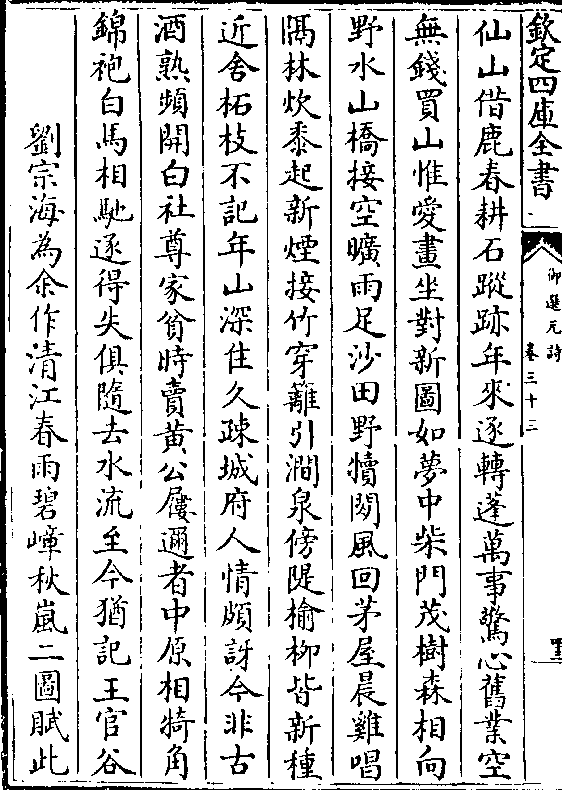 欽定四庫全書
御選元詩
卷三十三
仙山借鹿春耕石蹤跡年來逐轉蓬萬事驚心舊業空
無錢買山惟愛畫坐對新圖如夢中柴門茂樹森相向
野水山橋接空曠雨足沙田野犢閑風回茅屋晨雞唱
隅林炊黍起新煙接竹穿籬引澗泉傍隄榆柳皆新種
近舍柘枝不記年山深住久疎城府人情頗訝今非古
酒熟頻開白社尊家貧時賣黄公屨邇者中原相犄角
錦袍白馬相馳逐得失俱隨去水流至今猶記王官谷
劉宗海為余作清江春雨碧嶂秋嵐二圖賦此